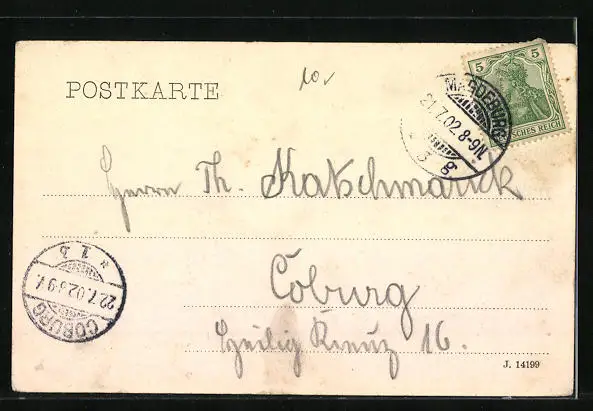 POSTKARTE
10
5 5
DEUTSCHES REICH
MAGDEBURG
21.7.02.8-9N.
Herrn Th. Katschmarick
Coburg
Heilig Kreuz 16.
COBURG
22.7.02.8-9V.
* 1 b
J. 14199